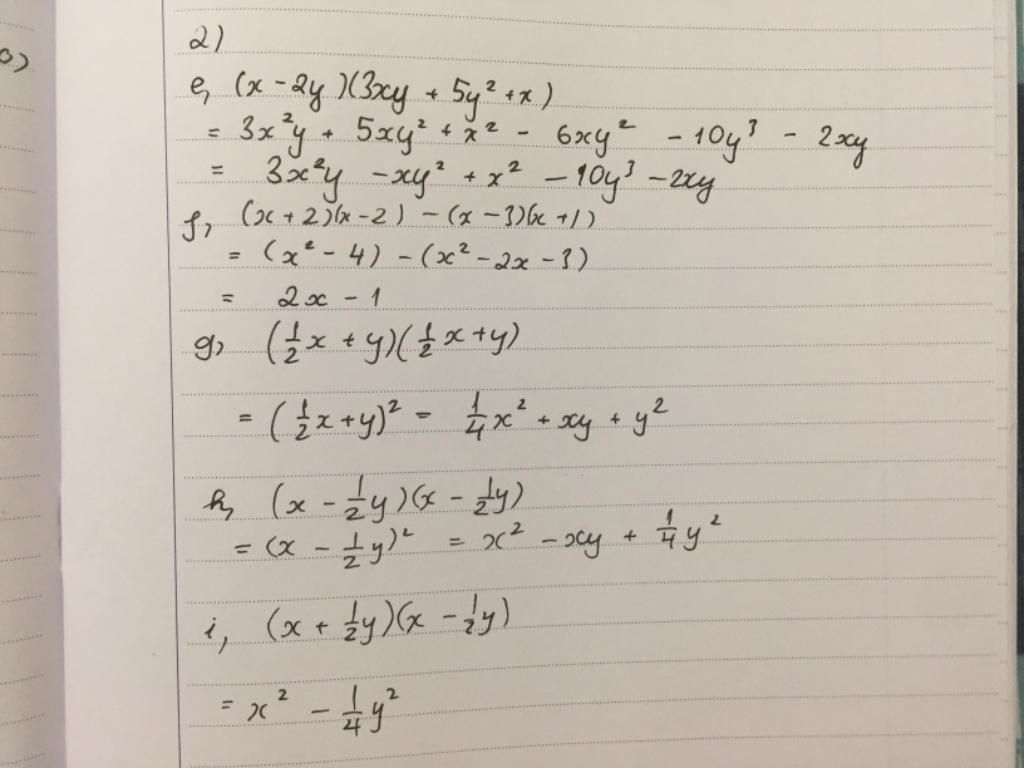 0)
2)
e, (x - 2y)(3xy + 5y² + x)
= 3x²y + 5xy² + x² - 6xy² - 10y³ - 2xy
= 3x²y - xy² + x² - 10y³ - 2xy
f, (x + 2)(x - 2) - (x - 3)(x + 1)
= (x² - 4) - (x² - 2x - 3)
= 2x - 1
g, (1/2 x + y)(1/2 x + y)
= (1/2 x + y)² = 1/4 x² + xy + y²
h, (x - 1/2 y)(x - 1/2 y)
= (x - 1/2 y)² = x² - xy + 1/4 y²
i, (x + 1/2 y)(x - 1/2 y)
= x² - 1/4 y²